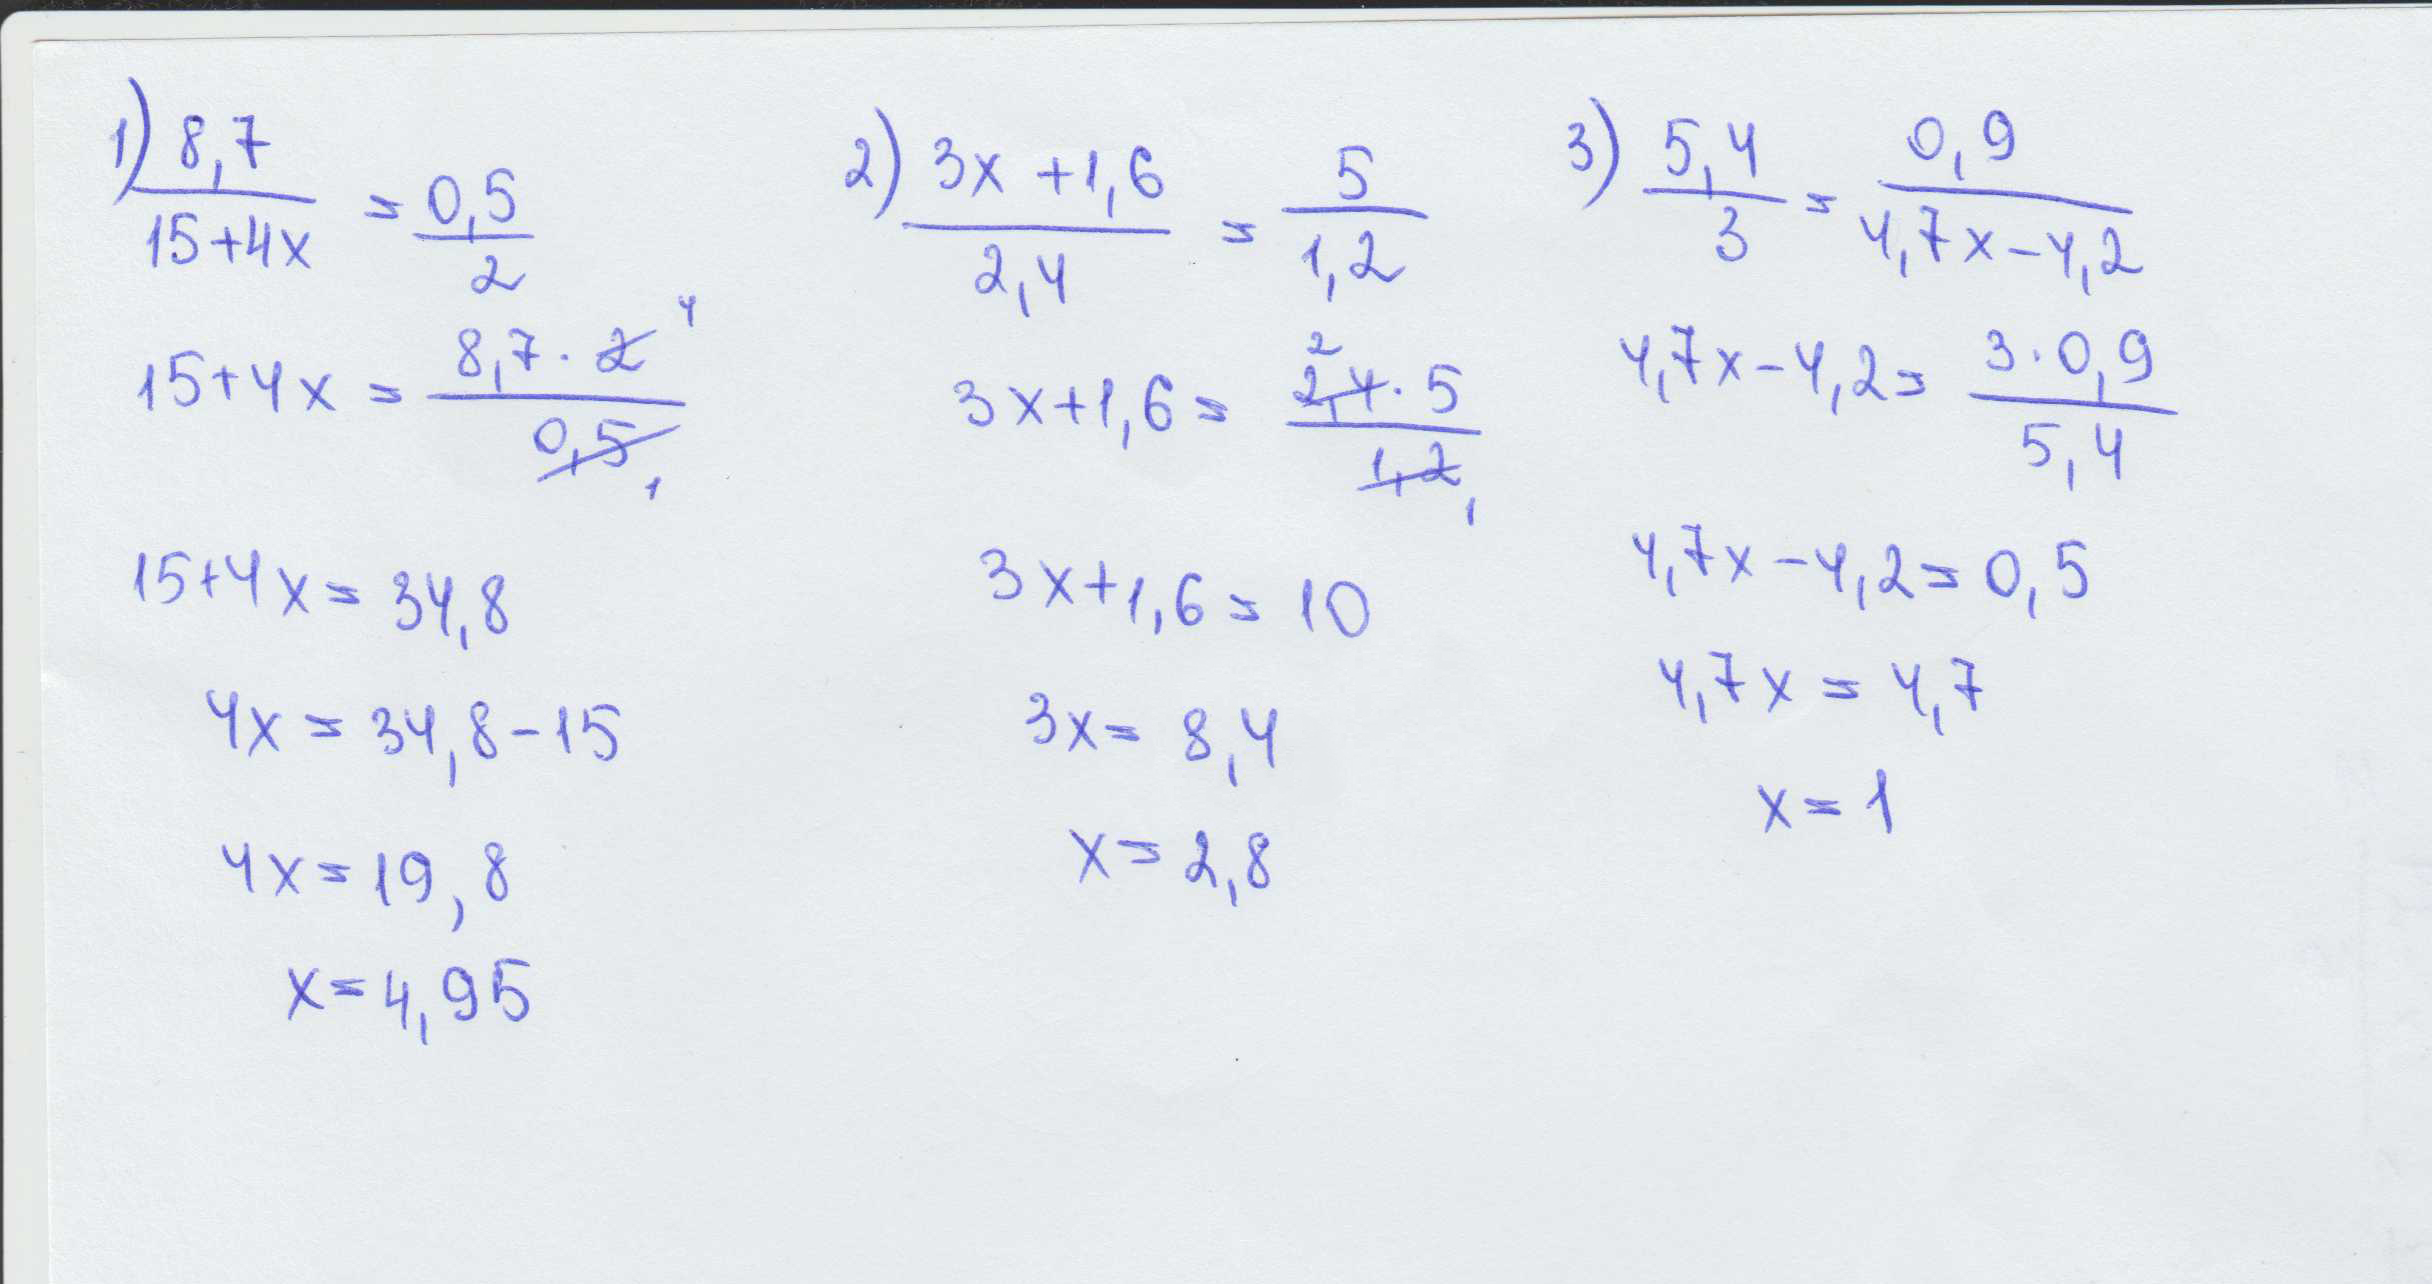 1) 8,7 / 15+4x = 0,5 / 2
15+4x = 8,7 · 2 4 / 0,5 1
15+4x = 34,8
4x = 34,8-15
4x = 19,8
x = 4,95
2) 3x+1,6 / 2,4 = 5 / 1,2
3x+1,6 = 2 2,4 · 5 / 1,2 1
3x+1,6 = 10
3x = 8,4
x = 2,8
3) 5,4 / 3 = 0,9 / 4,7x-4,2
4,7x-4,2 = 3 · 0,9 / 5,4
4,7x-4,2 = 0,5
4,7x = 4,7
x = 1